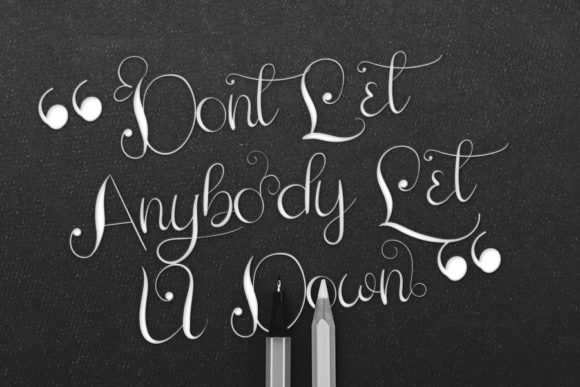 “Dont Let
Anybody Let
U Down“